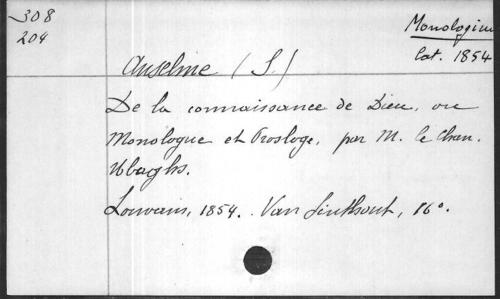 308
204
Monologium
lat. 1854
Anselme (S.)
De la connaissance de Dieu, ou
Monologue et Prosloge, par M. le Chan.
Ubaghs.
Louvain, 1854. Van Linthout, 16°.